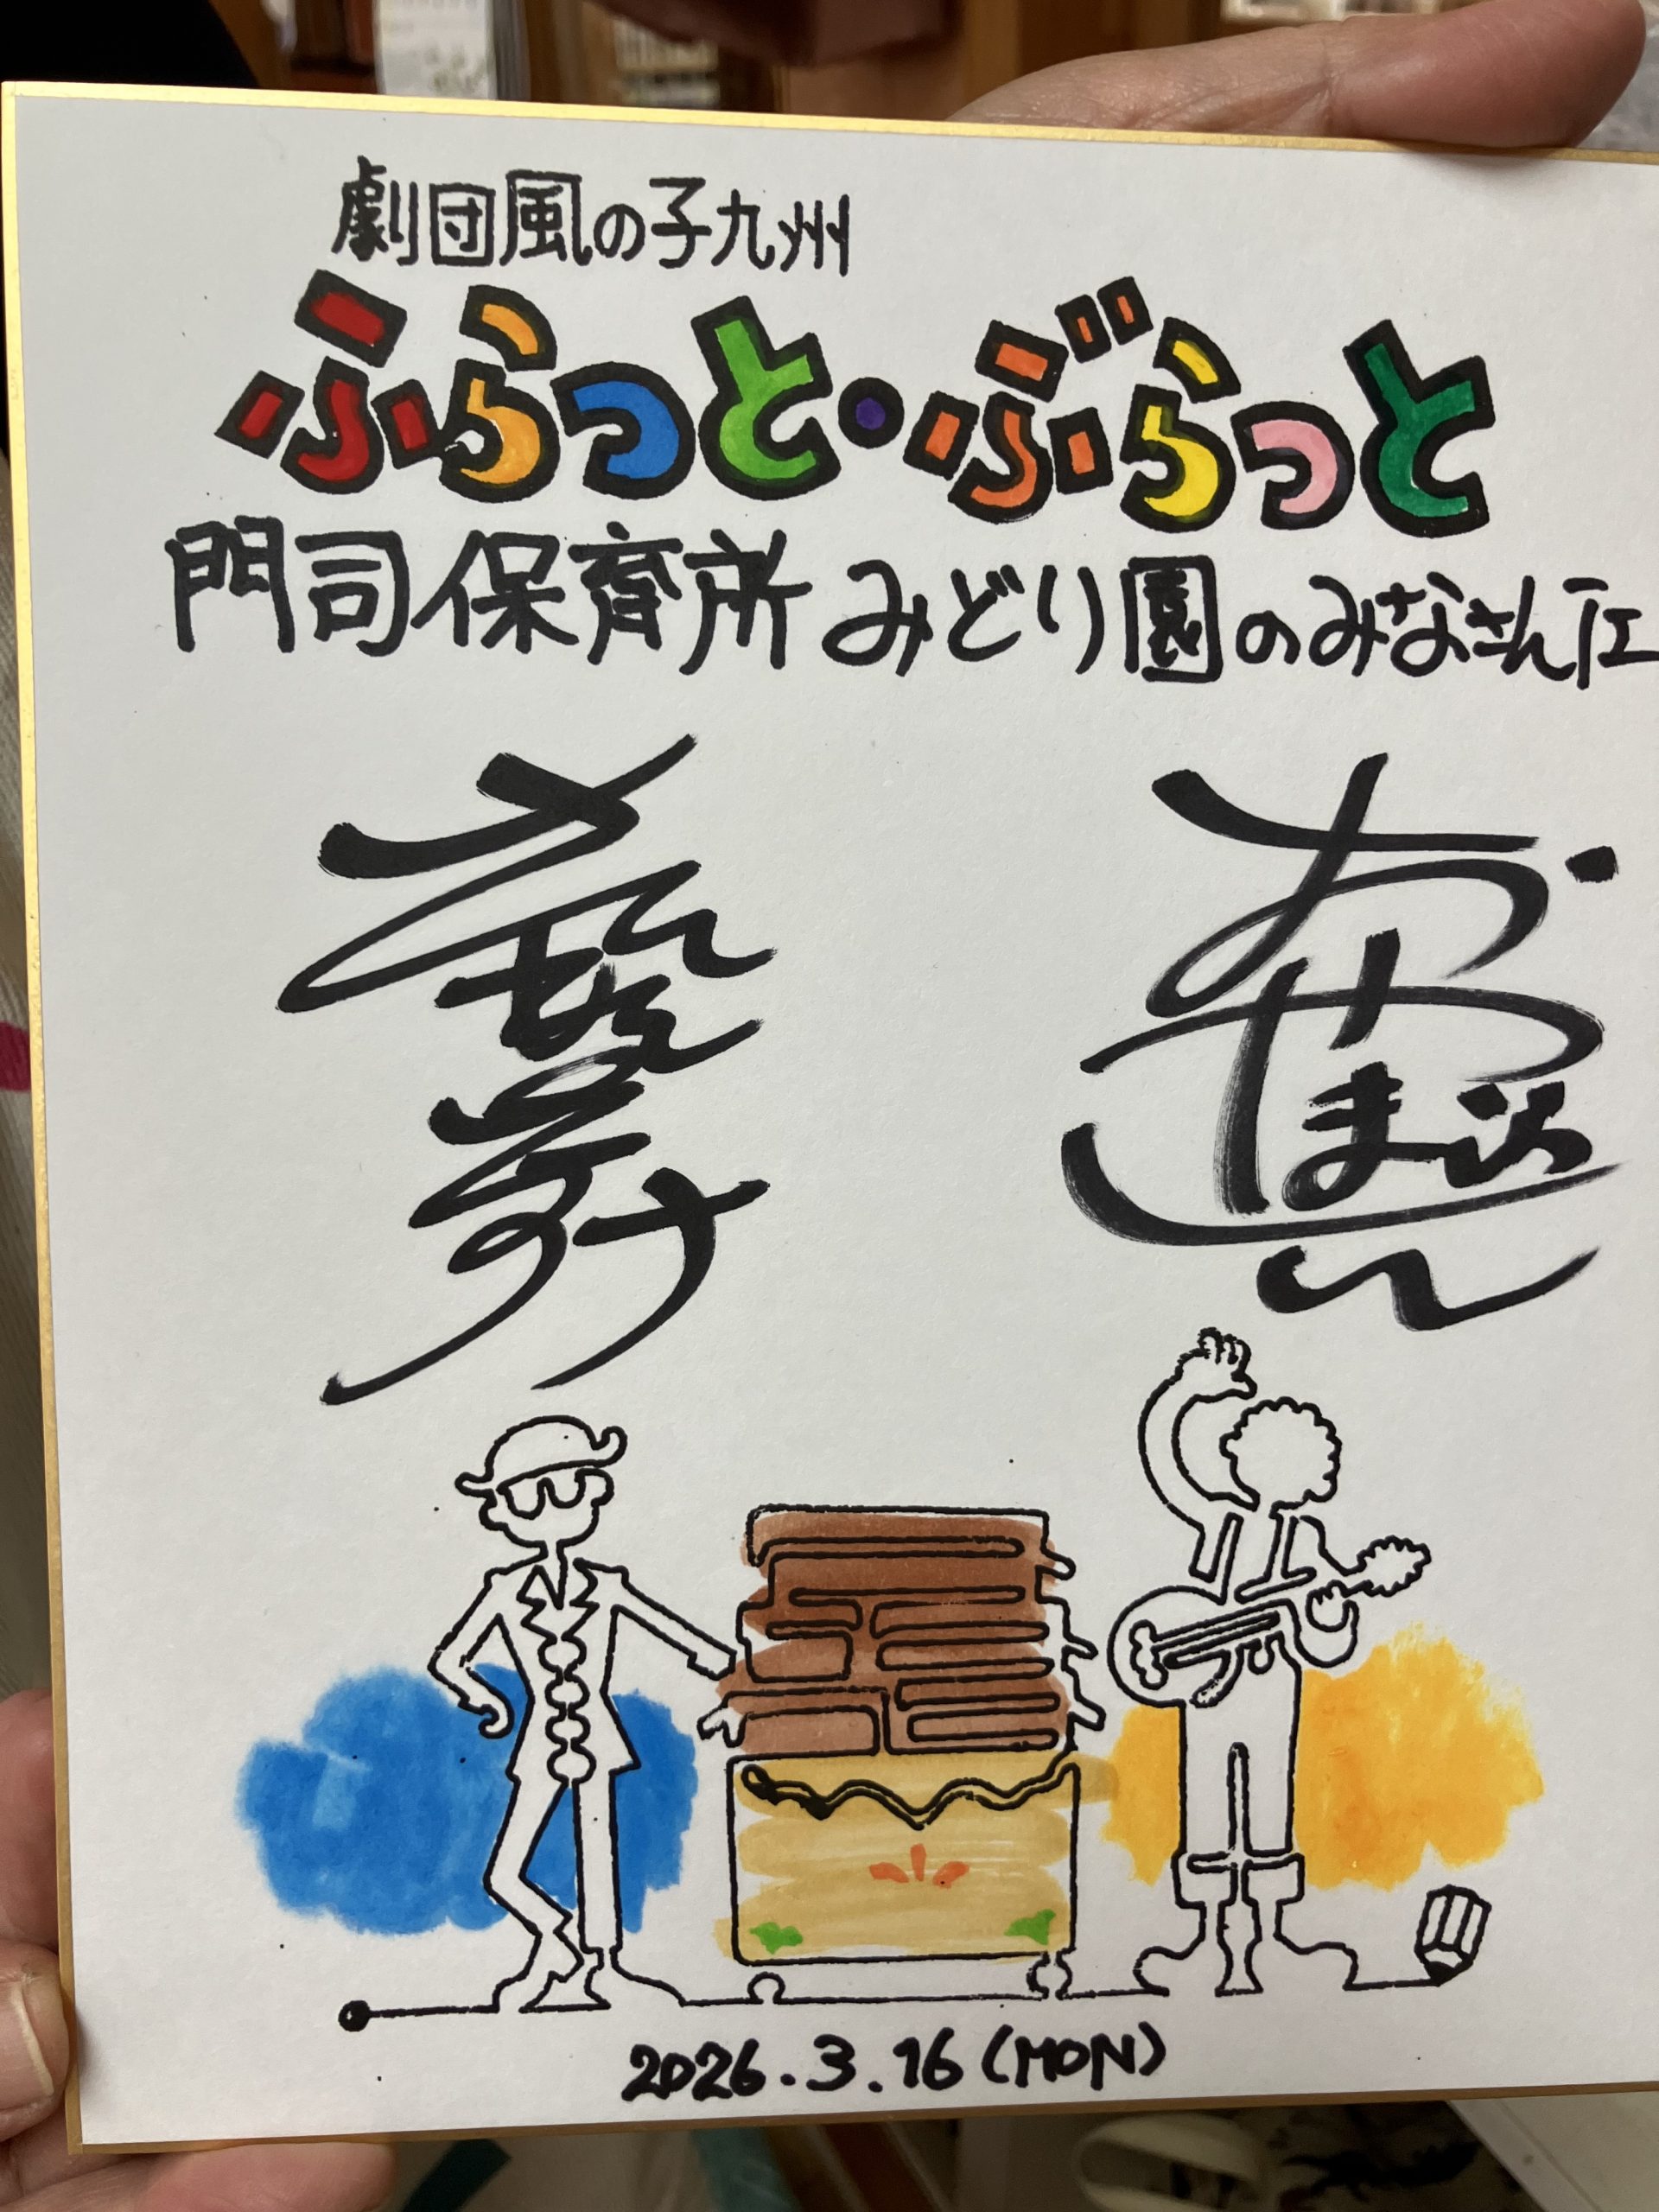 劇団風の子九州
ふらっと・ぶらっと
門司保育所 みどり園のみなさん江
2026.3.16(MON)